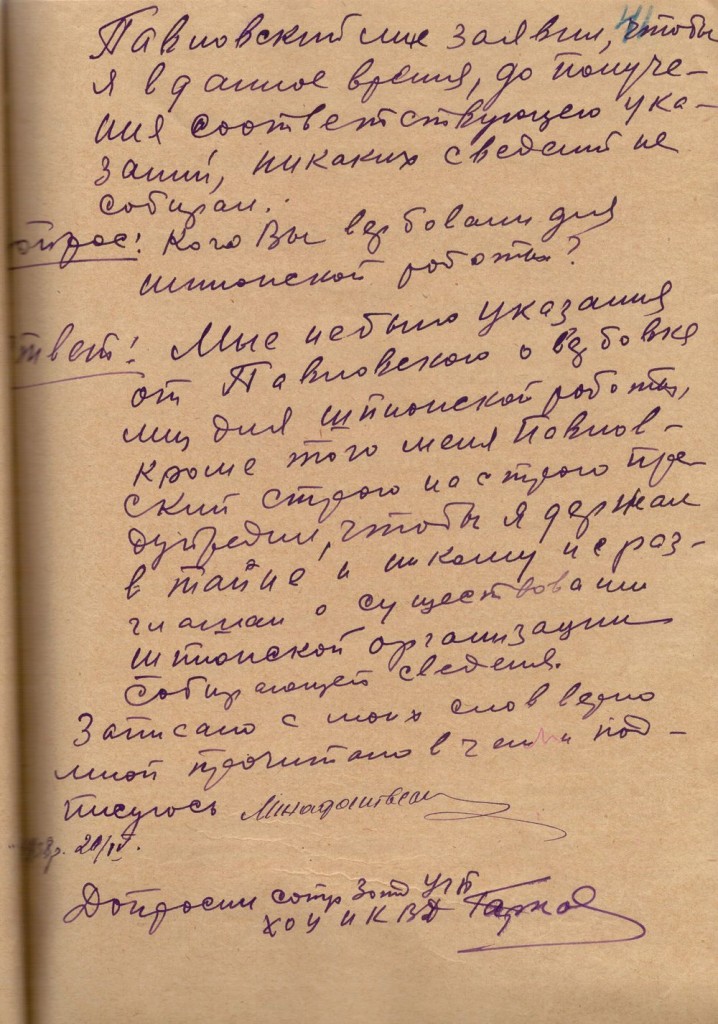 41
Павловский мне заявил, чтобы
я в данное время, до получе-
ния соответствующего ука-
заний, никаких сведений не
собирал.
опрос: Кого Вы вербовали для
шпионской работы?
твет: Мне небыло указания
от Павловского о вербовке
лиц для шпионской работы,
кроме того меня Павлов-
ский строго на строго пре-
дупредил, чтобы я держал
в тайне и никому не раз-
глашал о существовании
шпионской организации
собирающей сведения.
Записано с моих слов верно
мной прочитано в чем и под-
писуюсь
20/IV.
Допросил сотр 3 отд УГБ
ХОУ НКВД